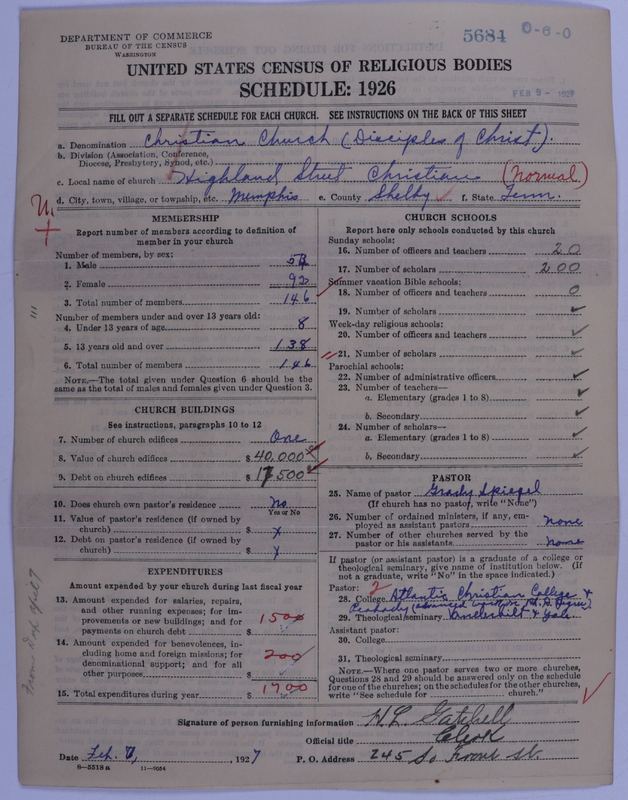 DEPARTMENT OF COMMERCE
BUREAU OF THE CENSUS
WASHINGTON
5684
0-6-0
FEB 9 - 1927
UNITED STATES CENSUS OF RELIGIOUS BODIES
SCHEDULE: 1926
FILL OUT A SEPARATE SCHEDULE FOR EACH CHURCH. SEE INSTRUCTIONS ON THE BACK OF THIS SHEET
a. Denomination Christian Church (Disciples of Christ).
b. Division (Association, Conference, Diocese, Presbytery, Synod, etc.)
c. Local name of church Highland Street Christian (Normal)
d. City, town, village, or township, etc. Memphis e. County Shelby f. State Tenn.
MEMBERSHIP
Report number of members according to definition of member in your church
Number of members, by sex:
1. Male 54
2. Female 92
3. Total number of members 146
Number of members under and over 13 years old:
4. Under 13 years of age 8
5. 13 years old and over 138
6. Total number of members 146
NOTE.—The total given under Question 6 should be the same as the total of males and females given under Question 3.
CHURCH BUILDINGS
See instructions, paragraphs 10 to 12
7. Number of church edifices One
8. Value of church edifices $ 40.000
9. Debt on church edifices $ 17500
10. Does church own pastor's residence No
Yes or No
11. Value of pastor's residence (if owned by church) $ x
12. Debt on pastor's residence (if owned by church) $ x
EXPENDITURES
Amount expended by your church during last fiscal year
13. Amount expended for salaries, repairs, and other running expenses; for improvements or new buildings; and for payments on church debt $ 1500
14. Amount expended for benevolences, including home and foreign missions; for denominational support; and for all other purposes $ 200
15. Total expenditures during year $ 1700
CHURCH SCHOOLS
Report here only schools conducted by this church
Sunday schools:
16. Number of officers and teachers 20
17. Number of scholars 200
Summer vacation Bible schools:
18. Number of officers and teachers 0
19. Number of scholars
Week-day religious schools:
20. Number of officers and teachers
21. Number of scholars
Parochial schools:
22. Number of administrative officers
23. Number of teachers—
a. Elementary (grades 1 to 8)
b. Secondary
24. Number of scholars—
a. Elementary (grades 1 to 8)
b. Secondary
PASTOR
25. Name of pastor Grady Spiegel
(If church has no pastor, write "None")
26. Number of ordained ministers, if any, employed as assistant pastors none
27. Number of other churches served by the pastor or his assistants none
If pastor (or assistant pastor) is a graduate of a college or theological seminary, give name of institution below. (If not a graduate, write "No" in the space indicated.)
Pastor: 2
28. College Atlantic Christian College &
Peabody
29. Theological seminary Vanderbilt & Yale
Assistant pastor:
30. College
31. Theological seminary
NOTE.—Where one pastor serves two or more churches, Questions 28 and 29 should be answered only on the schedule for one of the churches; on the schedules for the other churches, write "See schedule for church."
Signature of person furnishing information H L Gatchell
Official title Clerk
Date Feb. 8, 1927 P. O. Address 245 So Front St.
8—5518 a 11—9054